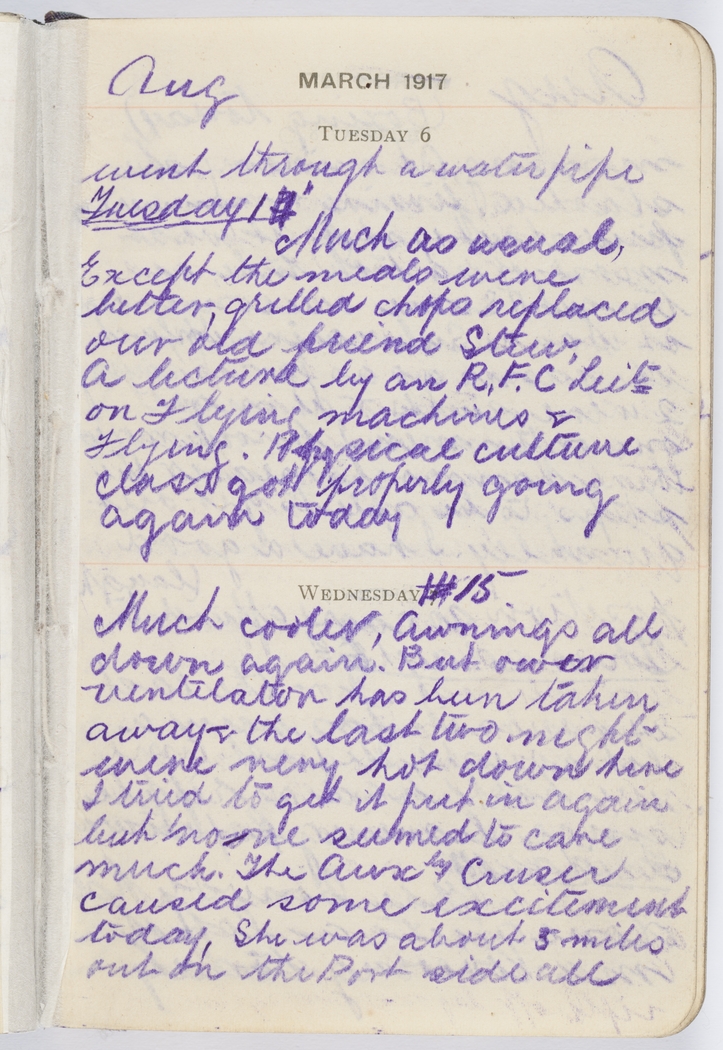 Aug MARCH 1917
TUESDAY 6
went through a waterpipe
Tuesday 14
Much as usual,
Except the meals were
better, grilled chops replaced
our old friend Stew.
A lecture by an R.F.C Leit
on Flying machines &
Flying. Physical culture
class got properly going
again today
WEDNESDAY 15
Much cooler, Awnings all
down again. But our
ventilator has been taken
away & the last two night
were very hot down here
I tried to get it put in again
but no one seemed to care
much. The Auxly Cruser
caused some excitement
today, She was about 3 miles
out on the Port side all